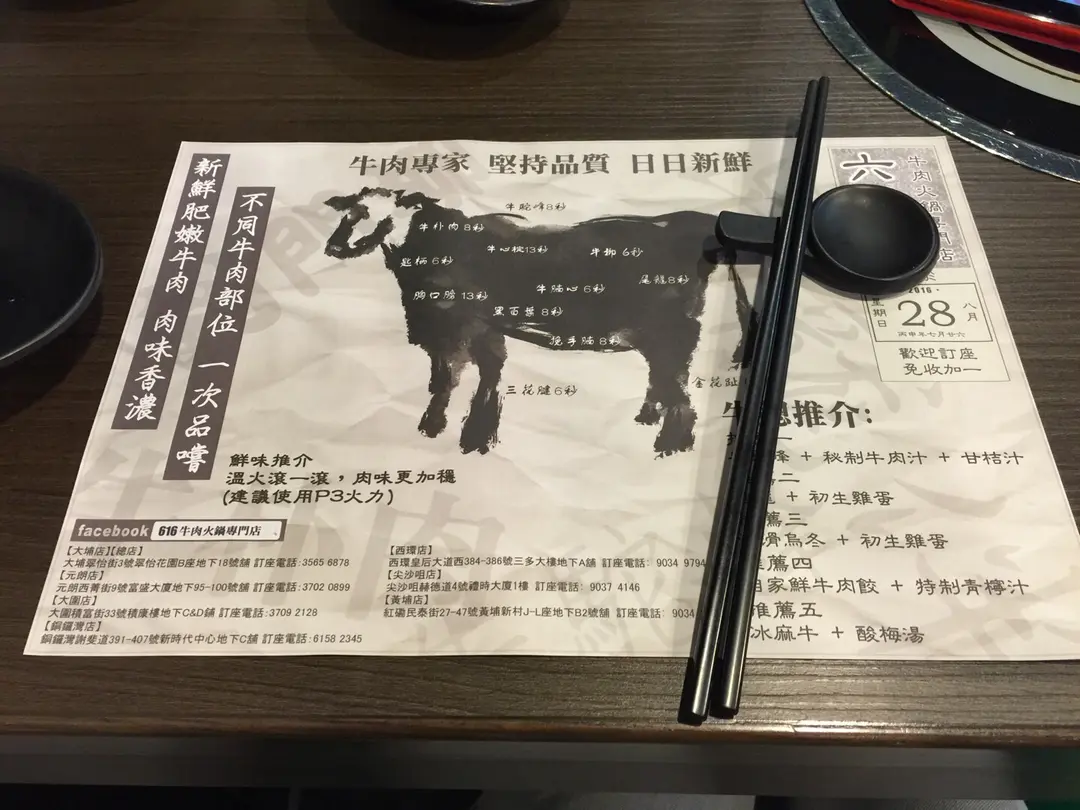 牛肉專家 堅持品質 日日新鮮
新鮮肥嫩牛肉 肉味香濃
不同牛肉部位 一次品嚐
牛䏢峰8秒
牛朴肉8秒
牛心柅13秒
牛柳6秒
匙柄6秒
尾龍8秒
牛腩心6秒
胸口膀13秒
黑百葉8秒
挽手腩8秒
三花腱6秒
金花趾
鮮味推介
溫火滾一滾，肉味更加穩
(建議使用P3火力)
六
牛肉火鍋專門店
2016
星期日
28
八月
丙申年七月廿六
歡迎訂座
免收加一
總推介:
一
峰 + 秘制牛肉汁 + 甘桔汁
二
+ 初生雞蛋
薦三
滑烏冬 + 初生雞蛋
推薦四
自家鮮牛肉餃 + 特制青檸汁
推薦五
冰麻牛 + 酸梅湯
facebook 616牛肉火鍋專門店
【大埔店】【總店】
大埔翠怡街3號翠怡花園B座地下18號舖 訂座電話:3565 6878
【元朗店】
元朗西菁街9號富盛大廈地下95-100號舖 訂座電話:3702 0899
【大圍店】
大圍積富街33號積康樓地下C&D鋪 訂座電話:3709 2128
【銅鑼灣店】
銅鑼灣謝斐道391-407號新時代中心地下C舖 訂座電話:6158 2345
【西環店】
西環皇后大道西384-386號三多大樓地下A舖 訂座電話: 9034 9794
【尖沙咀店】
尖沙咀赫德道4號禮時大廈1樓 訂座電話: 9037 4146
【黃埔店】
紅磡民泰街27-47號黃埔新村J-L座地下B2號舖 訂座電話: 9034